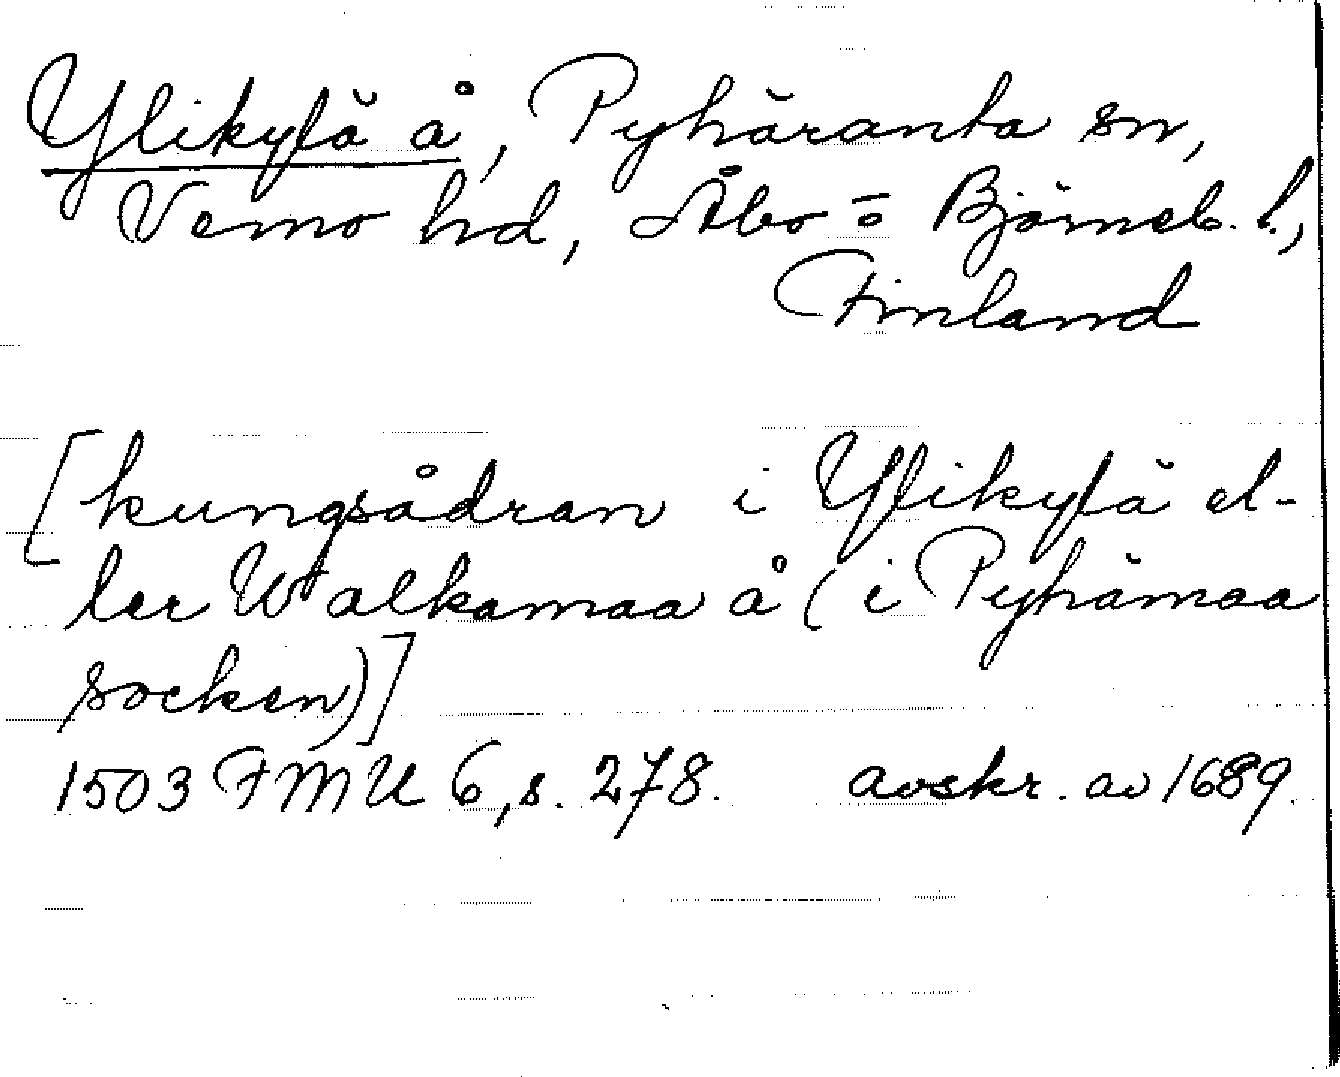 Ylikylä å, Pyhäranta sn,
Vemo hd, Åbo o Björneb. l.,
Finland
[kungsådran i Ylikylä el-
ler Walkamaa å (i Pyhämaa
socken)]
1503 FMU 6, s. 278. avskr. av 1689.